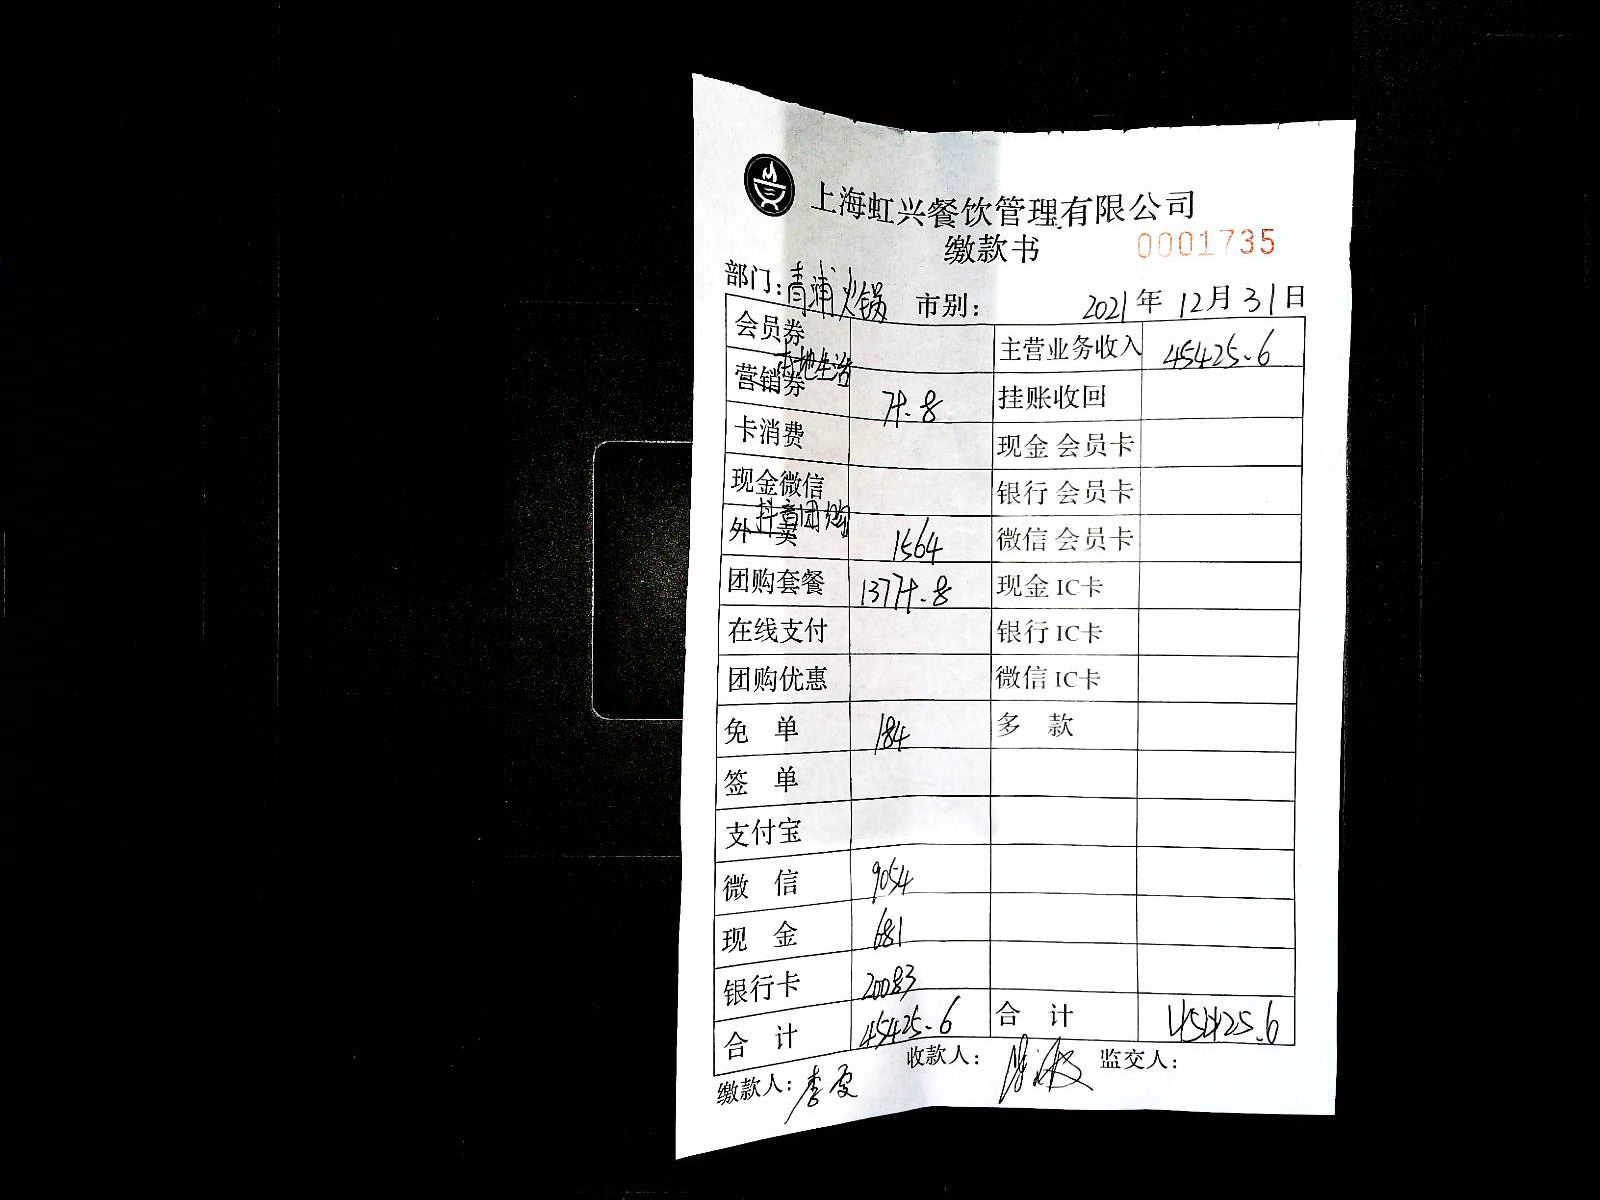 上海虹兴餐饮管理有限公司
缴款书 0001735
部门：青浦火锅 市别： 2021年12月31日
会员券 主营业务收入 45425.6
本地生活
营销券 79.8 挂账收回
卡消费 现金 会员卡
现金微信 银行 会员卡
抖音团购
外卖 1564 微信 会员卡
团购套餐 13779.8 现金 IC卡
在线支付 银行 IC卡
团购优惠 微信 IC卡
免 单 184 多 款
签 单
支付宝
微 信 9054
现 金 681
银行卡 20083
合 计 45425.6 合 计 45425.6
缴款人： 收款人： 监交人：